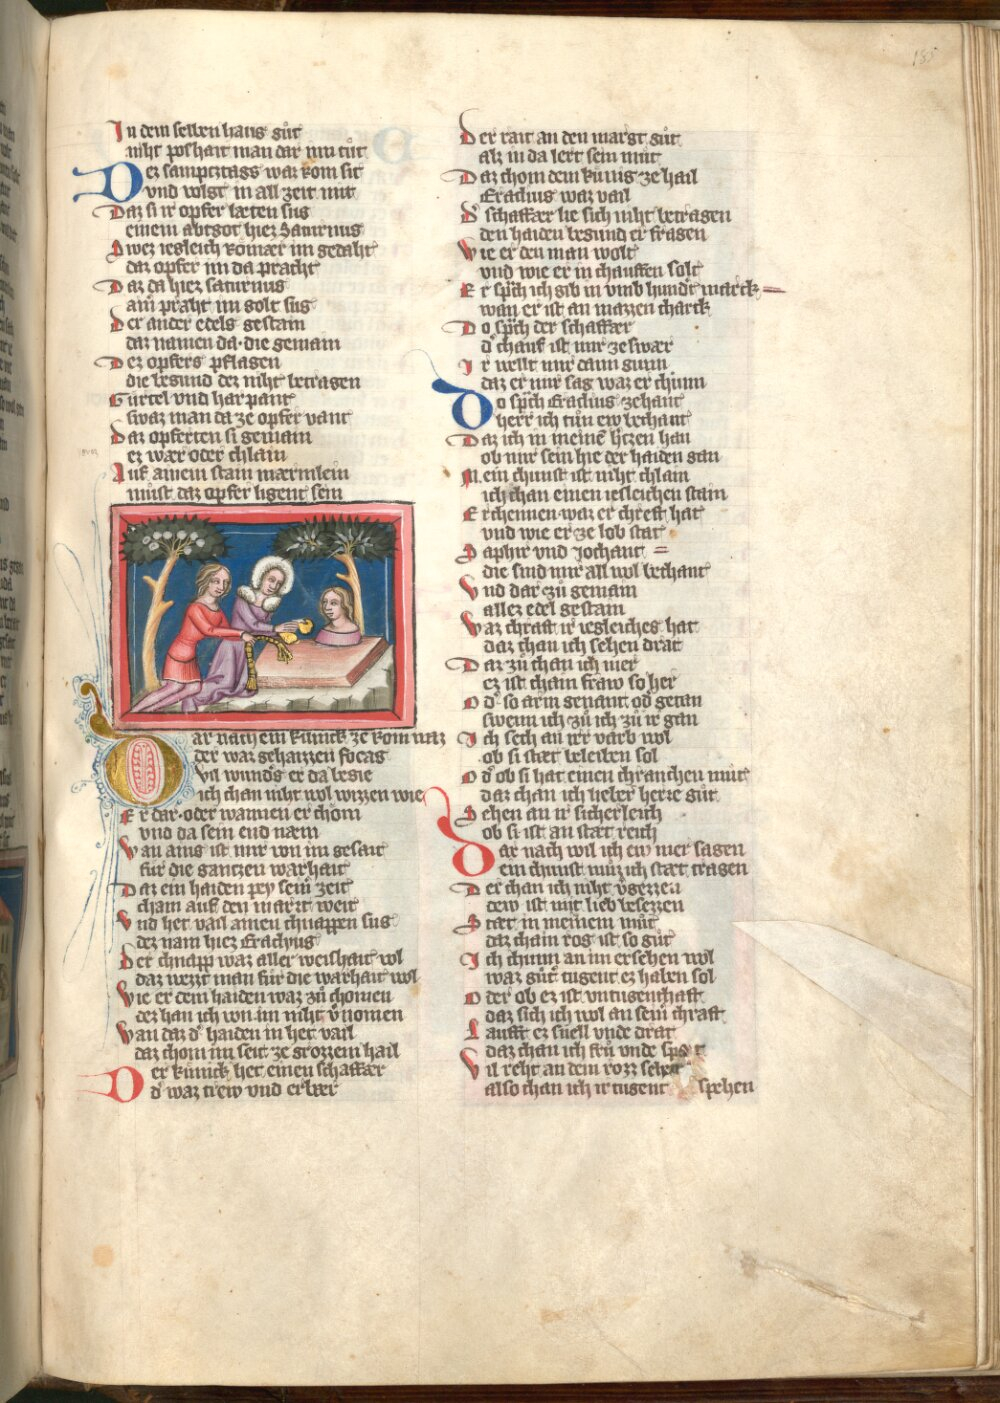 185
In dem selben haus gůt
niht poshait man dar inn tůt
Dez sampcztags waz rom sit
vnd volgt in all zeit mit
Daz si ir opfer læten sus
einem abtgot hiez Saturnus
Swez iegleich Romær im gedaht
daz opfer im da pracht
Daz da hiez saturnus
ain praht im golt sus
Der ander edels gestain
daz namen da die gemain
Dez opfers pflagen
die begund dez niht betragen
Gürtel vnd harpant
swaz man da ze opfer vant
Daz opferten si gemain
ez wær oder chlain
Auf ainem stain mærmlein
můst daz opfer ligent sein
Dar nach ein künick ze rom waz
der waz gehaizzen focas
vil wunders er da begie
ich chan niht wol wizzen wie
Er dar oder wannen er chom
vnd da sein end næm
Wan ains ist mir von im gesait
für die gantzen warhait
Daz ein haiden pey seiner zeit
cham auf den marzt weit
Vnd het vail ainen chnappen sus
dez nam hiez Eradyus
Der chnapp waz aller weishait vol
daz wezzt man für die warhait wol
Wie er dem haiden waz zů chomen
dez han ich von im niht v̊nomen
Wan daz d' haiden in het vail
daz chom im seit ze grozzem hail
Der künick het einen schaffær
d' waz trew vnd erbær
Der rait an den margt gůt
alz in da lert sein můt
Daz chom dem künig ze hail
Eradius waz vail
D' schaffær lie sich niht betragen
den haiden begund er fragen
Wie er den man wolt
vnd wie er in chauffen solt
Er sp̄ch ich gib in vmb hundt marck
wan er ist an mazzen charck
Do sp̄ch der schaffær
d' chauf ist mir ze swær
Ir wellt mir dann gunn
daz er mir sag waz er chunn
Do sp̄ch Eradius zehant
herr ich tůn ew bechant
Daz ich in meinē h'czen han
ob mir sein hie der haiden gan
Mein chunst ist niht chlain
ich chan einen iesleichen stain
Erchennen waz er chreft hat
vnd wie er ze lob stat
Saphir vnd Jochant =
die sind mir all wol bechant
Vnd dar zů gemain
allez edel gestain
Waz chraft ir iegleiches hat
daz chan ich sehen drat
Dar zů chan ich mer
ez ist chain fraw so her
Od' so arm genant od' getan
swenn ich zů ich zů ir gan
Ich sech an irr varb wol
ob si stæt beleiben sol
Od' ob si hat einen chranchen můt
daz chan ich lieber herre gůt
Sehen an ir sicherleich
ob si ist an stæt reich
Dar nach wil ich ew mer sagen
ein chunst můz ich stæt tragen
Der chan ich niht v̊gezzen
dew ist mit lieb besezzen
Stæt in meinem můt
daz chain ros ist so gůt
Ich chunn an im ersehen wol
waz gůt' tugent ez haben sol
Oder ob ez ist vntugenthaft
daz sich ich wol an seiner chraft
Lauft ez snell vnde drat
daz chan ich frů vnde spat
Vil reht an dem rozz
also chan ich ir tugent spehen